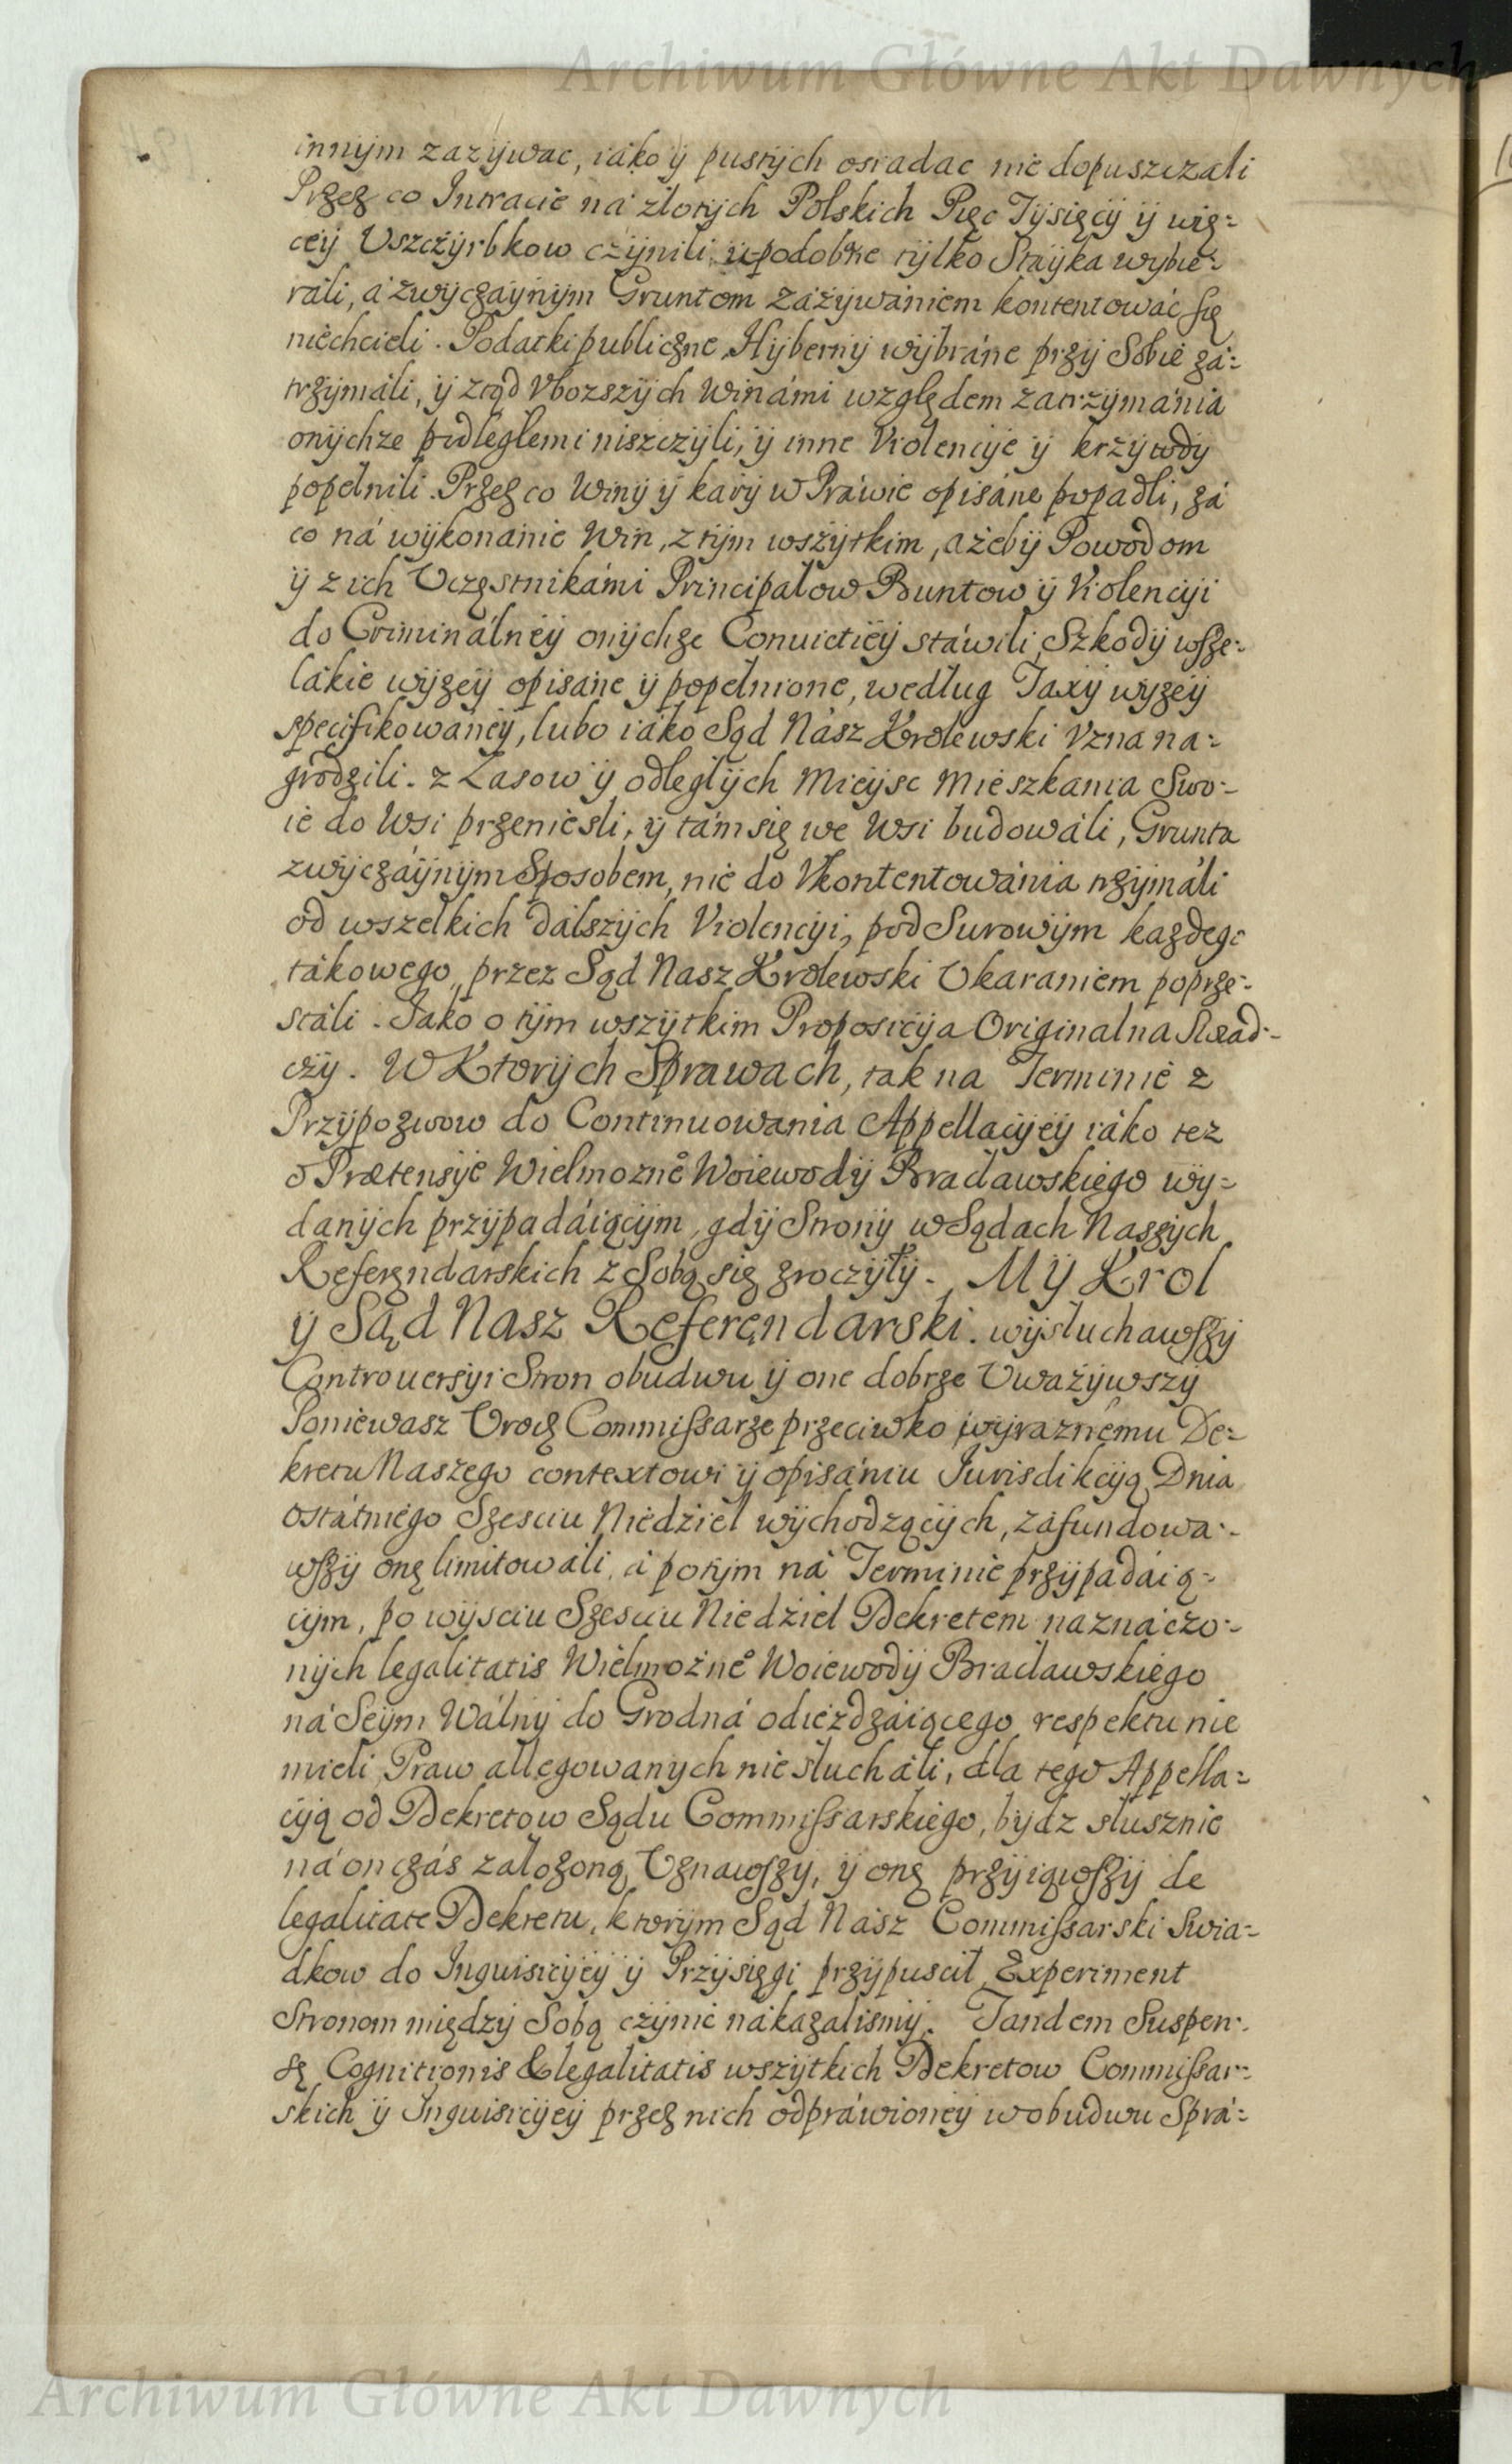 Archiwum Główne Akt Dawnych
innÿm zazÿwac, iáko ÿ pustÿch osiadac nie dopuszczali
Przez co Intracie ná złotÿch Polskich Pięc Tÿsięcÿ ÿ wię=
ceÿ Vszczÿrbkow czÿnili, upodobne tÿlko Staÿka wybie=
ráli, á zwÿczaÿnÿm Gruntom zażÿwániem kontentowác się
niechcieli. Podatki publiczne, Hÿbernÿ wÿbráne przÿ Sobie zá=
trzÿmáli, ÿ ztąd Vbozszÿch Winámi względem zatrzÿmánia
onÿchze podległemi niszczÿli, ÿ inne Violencÿe ÿ krzÿwdÿ
popełnili. Przez co Winÿ ÿ karÿ w Práwie opisáne popadli, zá
co ná wÿkonánie Win, z tÿm wszÿtkim, ażebÿ Powodom
ÿ z ich Vczęstnikámi Principałow Buntow ÿ Violencÿi
do Criminálneÿ onÿchze Conuictieÿ stáwili, Szkodÿ wsze=
lákie wÿzeÿ opisáne ÿ popełnione, według Taxÿ wÿzeÿ
specifikowáneÿ, lubo iáko Sąd Nász Krolewski Vzna na=
grodzili. z Lasow ÿ odległÿch Mieÿsc Mieszkania Swo=
ie do Wsi przeniesli, ÿ tám się we Wsi budowáli, Grunta
zwÿczáÿnÿm Sposobem, nie do Vkontentowánia trzÿmáli
od wszelkich dálszÿch Violencÿi, pod Surowÿm kazdego
tákowego, przez Sąd Nasz Krolewski Vkaraniem poprze=
stáli. Jáko o tÿm wszÿtkim Proposicÿa Originalna Swiad=
czÿ. W Ktorÿch Sprawach, tak na Terminie z
Przÿpozwow do Continuowania Appellacÿeÿ iáko tez
o Prætensÿe Wielmozne° Woiewodÿ Bracławskiego wÿ=
danÿch przÿpadáiącÿm, gdÿ Stronÿ w Sądach Naszÿch
Referęndarskich z Sobą się zroczÿłÿ. MŸ Krol
ÿ Sąd Nasz Referęndarski. wÿsłuchawszÿ
Controuersÿi Stron obudwu ÿ one dobrze Vważÿwszÿ
Poniewasz Vrodz Commissarze przeciwko wÿraznemu De=
kretu Naszego contextowi ÿ opisániu Jurisdikcÿą Dnia
ostátniego Szesciu Niedziel wÿchodzącÿch, zafundowa=
wszÿ onę limitowáli, á potÿm ná Terminie przÿpadáią=
cÿm, po wÿsciu Szesciu Niedziel Dekretem naznáczo=
nÿch legalitatis Wielmożne° Woiewodÿ Bracławskiego
ná Seÿm Wálnÿ do Grodná odieżdzáiącego respektu nie
mieli, Praw allegowanÿch nie słucháli, dla tego Appella=
cÿą od Dekretow Sądu Commissarskiego, bÿdz słusznie
ná onczás założoną Vznawszÿ, ÿ onę przÿiąwszÿ de
legalitate Dekretu, ktorÿm Sąd Nász Commissarski Swia=
dkow do Inquisicÿeÿ ÿ Przÿsięgi przÿpuscił, Experiment
Stronom międzÿ Sobą czÿnic nákazalismÿ. Tandem Suspen=
sę Cognitionis & legalitatis wszÿtkich Dekretow Commissar=
skich ÿ Inquisicÿeÿ przez nich odpráwioneÿ w obudwu Sprá=
Archiwum Główne Akt Dawnych